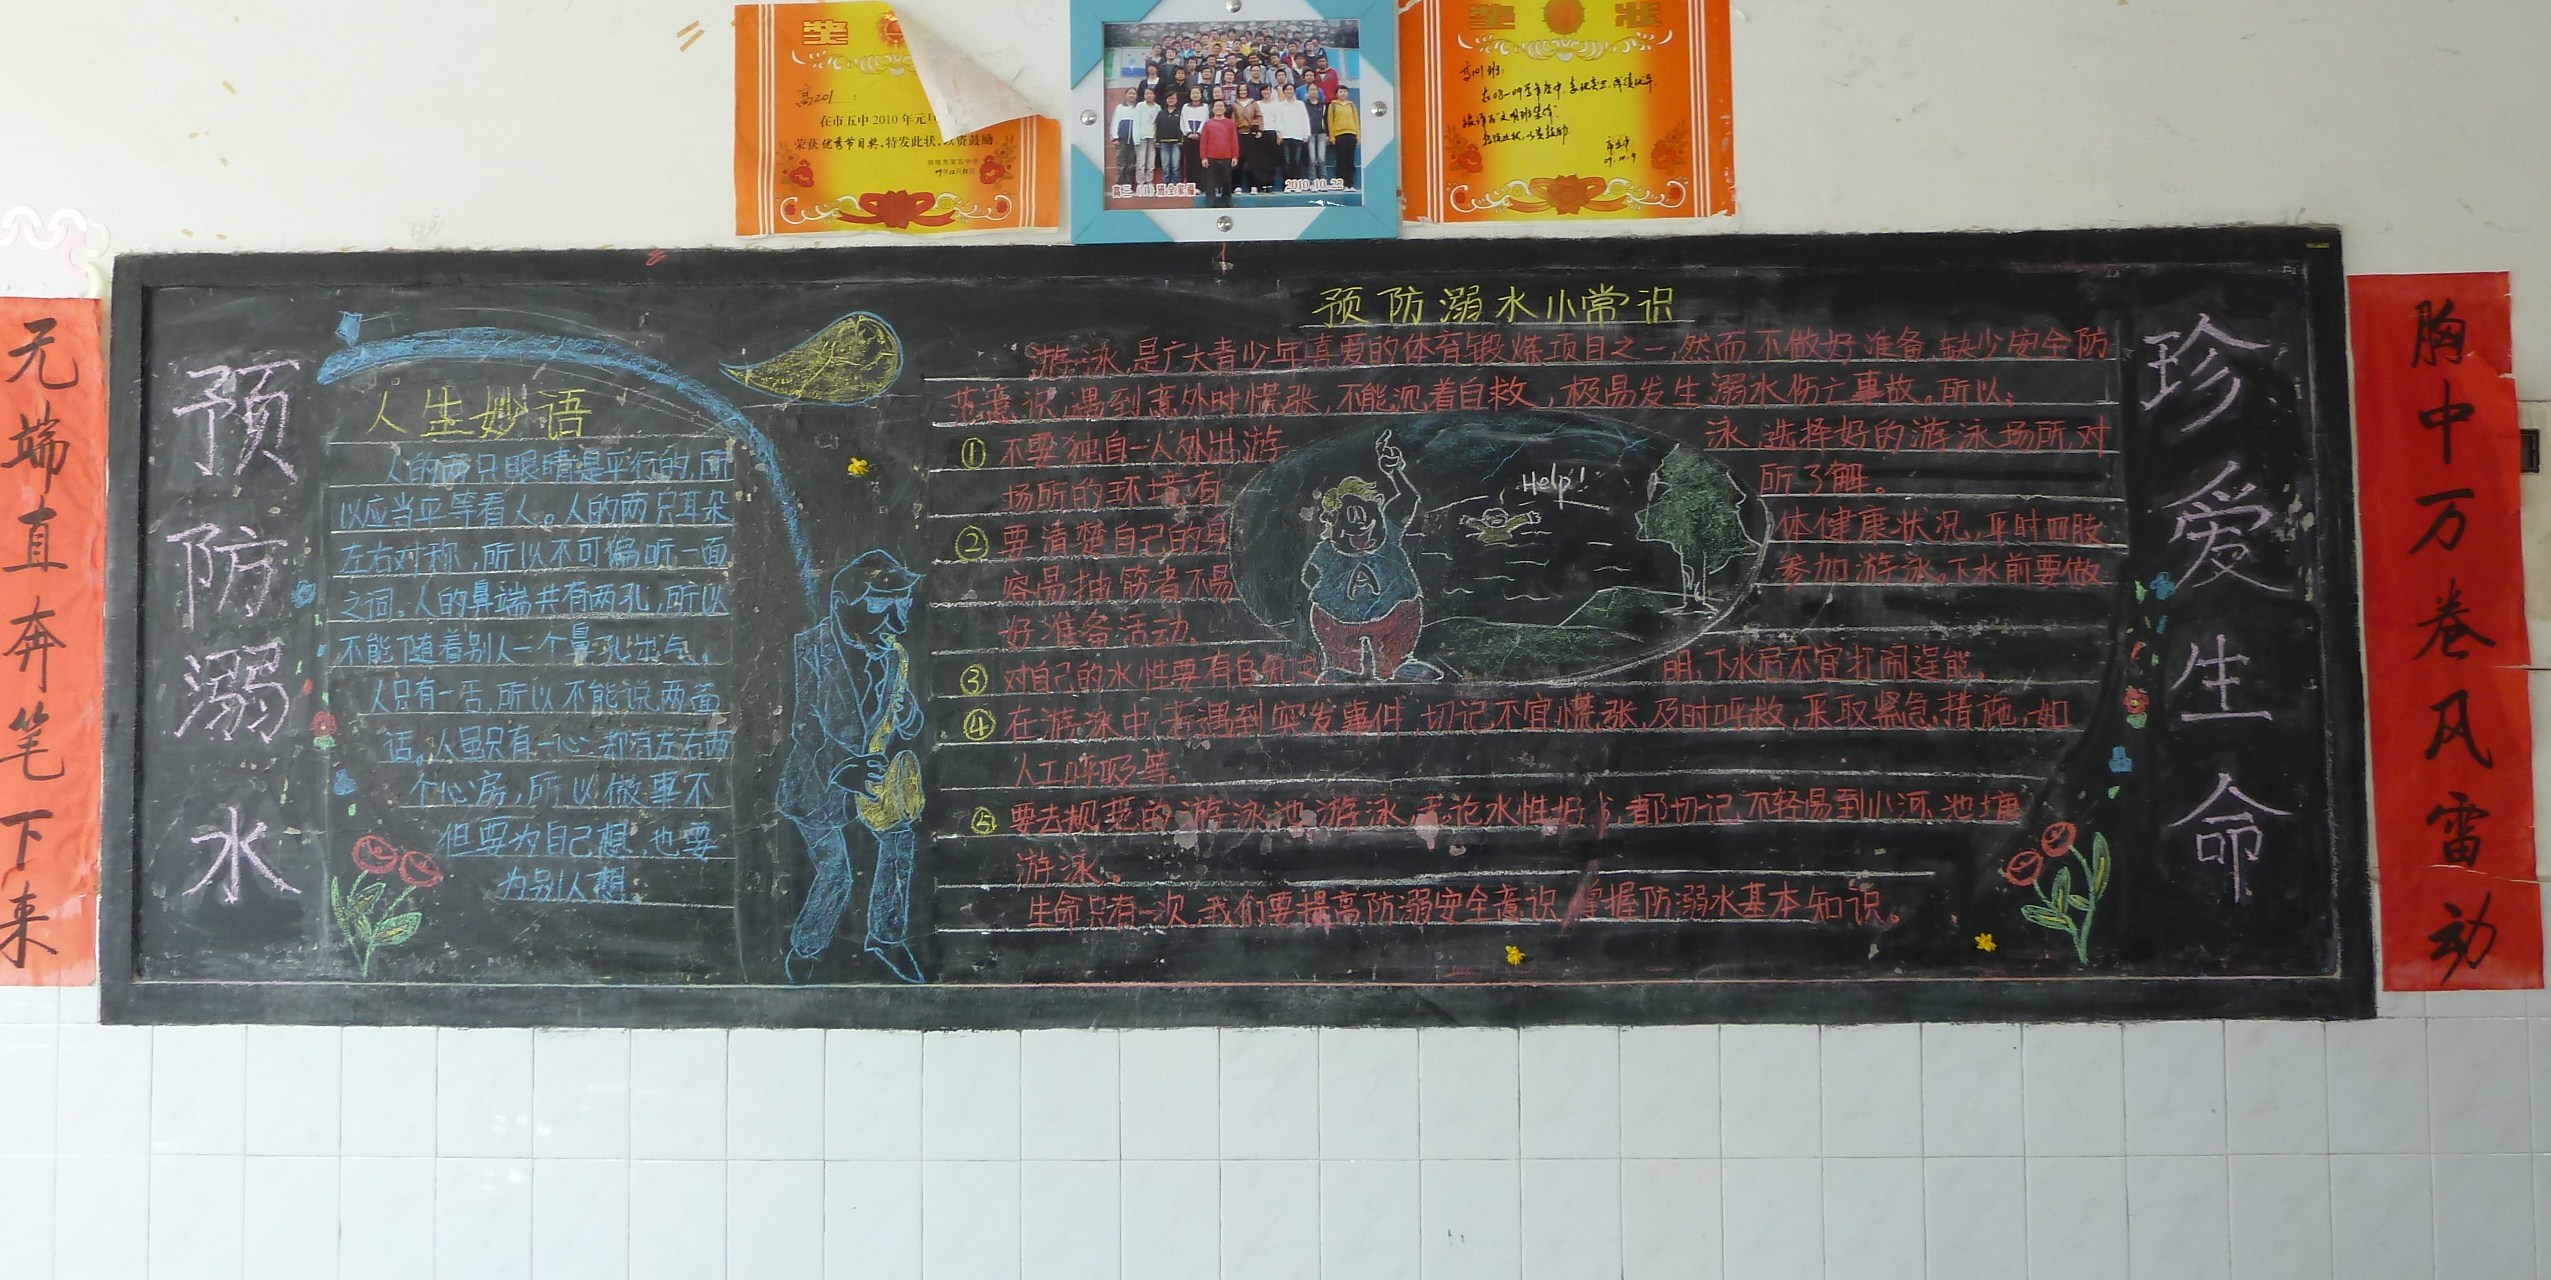 奖
高201：
在市五中2010年元
荣获优秀节目奖,特发此状,以资鼓励
高三（1）班全家福
2010.10.22
奖状
高101班:
在08-09学年度中,表现突出,成绩优异.
被评为"文明班集体"
特发此状,以资鼓励
市五中
09.10.9
无端直奔笔下来
预防溺水
人生妙语
人的两只眼睛是平行的,所
以应当平等看人。人的两只耳朵
左右对称,所以不可偏听一面
之词。人的鼻端共有两孔,所以
不能随着别人一个鼻孔出气。
人只有一舌,所以不能说两面
话。人虽只有一心,却有左右两
个心房,所以做事不
但要为自己想,也要
为别人想。
预防溺水小常识
游泳,是广大青少年喜爱的体育锻炼项目之一,然而不做好准备、缺少安全防
范意识,遇到意外时慌张,不能沉着自救,极易发生溺水伤亡事故。所以:
① 不要独自一人外出游泳,选择好的游泳场所,对
场所的环境有所了解。
② 要清楚自己的身体健康状况,平时四肢
容易抽筋者不易参加游泳。下水前要做
好准备活动。
③ 对自己的水性要有自知之明,下水后不宜打闹逞能。
④ 在游泳中,若遇到突发事件,切记不宜慌张,及时呼救,采取紧急措施,如
人工呼吸等。
⑤ 要去规范的游泳池游泳,无论水性好,都切记不轻易到小河、池塘
游泳。
生命只有一次,我们要提高防溺安全意识,掌握防溺水基本知识。
Help!
A
珍爱生命
胸中万卷风雷动